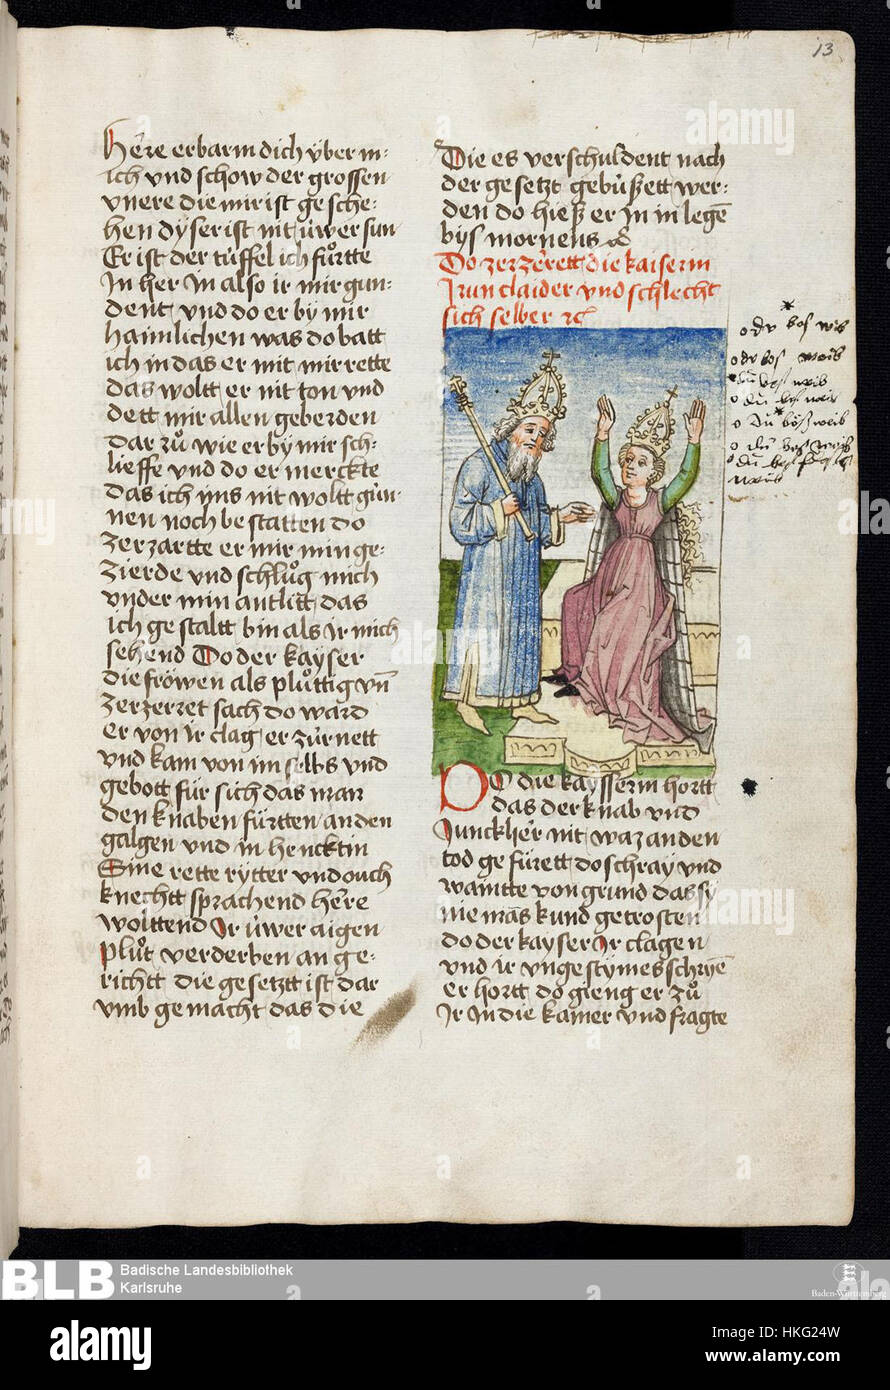 13
Here erbarm dich über m:
ich vnd schow der grossen
vnere die mir ist gesche:
hen dyser ist nit üwer sun
Er ist der tüffel ich fürtte
Jn her Jn also ir mir gun:
dent vnd do er by mir
haimlichen was do batt
ich in das er mit mir rette
das woltt er nit ton vnd
dett mir allen geberden
dar zů wie er by mir sch:
lieffe vnd do er merckte
das ich yns nit woltt gün:
nen noch bestatten do
zerzartte er mir min ge:
zierde vnd schlůg mich
vnder min antlitt das
ich gestaltt bin als Jr mich
sehend Do der kayser
die fröwen als plůttig vn̄
zerzerret sach do ward
er von ir clag erzürnett
vnd kam von im selbs vnd
gebott für sich das man
den knaben fürtten an den
galgen vnd in hencktin
Sine rette rytter vnd ouch
knechtt sprachend here
wölttend Jr üwer aigen
plůt verderben an ge:
richtt die gesetzt ist dar
vmb gemacht das die
Die es verschuldent nach
der gesetzt gebüßett wer:
den do hieß er Jn in legē
bys mornens &c
Do zerzerett die kaiserin
Jr un claider vnd schlecht
sich selber &c
o du bos wib
o du bos weib
du bos weib
o du bos weib
o du böß weib
o du bos weib
o du bos
weib
DO die kaysserin hortt
das der knab vnd
Junckher nit waz an den
tod gefürett do schray vnd
waintte von grund das sy
nie mās kund getrosten
do der kayser Jr clagen
vnd ir vngestymes schryē
er hortt do gieng er zů
Jr Jn die kamer vnd fragte
BLB Badische Landesbibliothek
Karlsruhe
Baden-Württemberg
alamy
Image ID: HKG24W
www.alamy.com